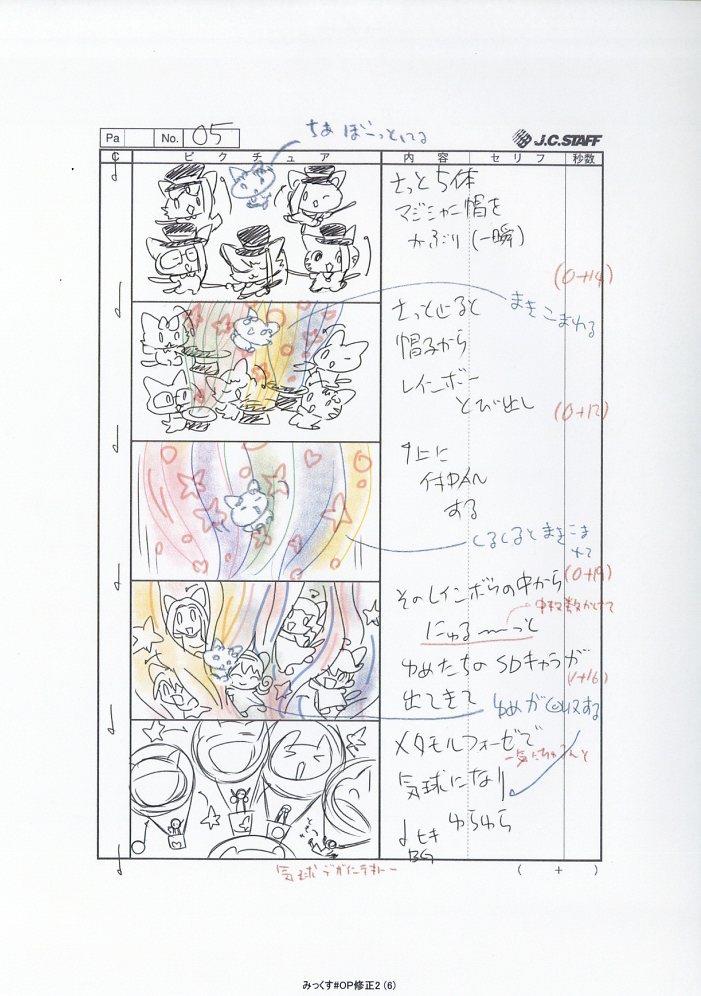 Pa
No. 05
J.C.STAFF
ちあ ぼーっとしてる
C
ピクチュア
内容
セリフ
秒数
さっと5体
マジシャン帽を
かぶり (一瞬)
(0+14)
さっと
帽子から
レインボー
とび出し
まきこまれる
(0+12)
↑上に
付PAN
する
くるくるとまきこま
れて
(0+19)
そのレインボーの中から
中枚数かけて
にゅる〜っと
ゆめたちのSDキャラが
(1+16)
出てきて
ゆめが回収する
メタモルフォーゼで
一気に
気球になり
ゆらゆら
ヒキ
BG
気球
( + )
みっくす#OP修正2 (6)